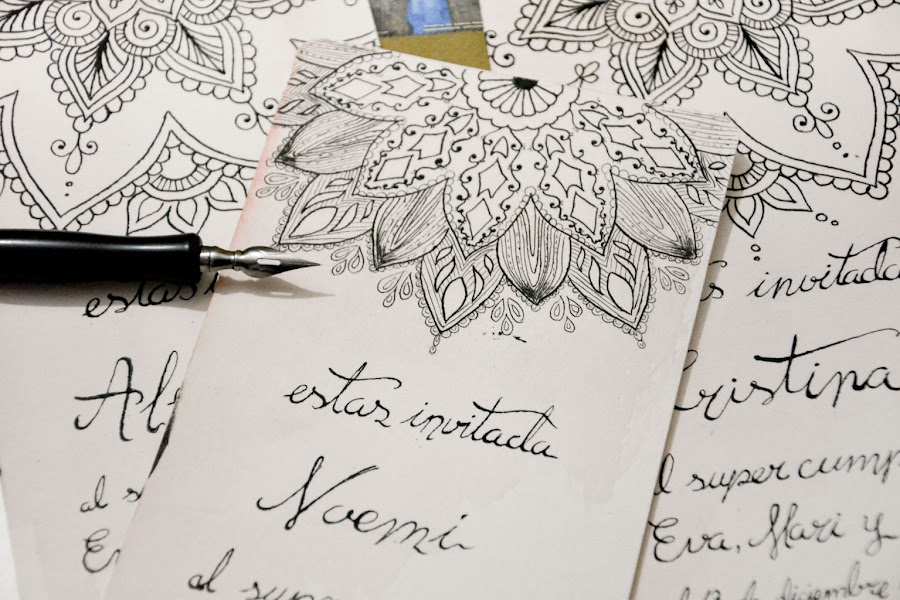 estas
al
estas invitada
Noemi
al supe
s invitada
ristina
l super cump
Eva, Mari y
de diciembre